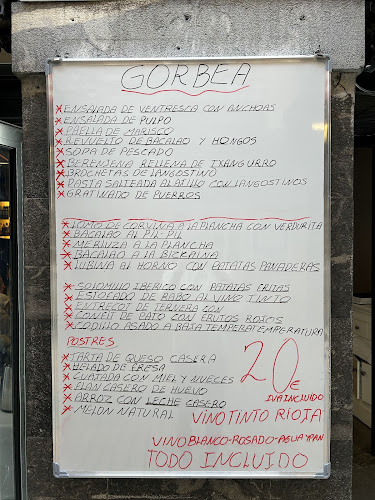 GORBEA
*ENSALADA DE VENTRESCA CON ANCHOAS
*ENSALADA DE PULPO
*PAELLA DE MARISCO
*REVUELTO DE BACALAO Y HONGOS
*SOPA DE PESCADO
*BERENJENA RELLENA DE TXANGURRO
*BROCHETAS DE LANGOSTINO
*PASTA SALTEADA AL AJILLO CON LANGOSTINOS
*GRATINADO DE PUERROS
*LOMO DE CORVINA A LA PLANCHA CON VERDURITA
*BACALAO AL PIL-PIL
*MERLUZA A LA PLANCHA
*BACALAO A LA BIZKAINA
*LUBINA AL HORNO CON PATATAS PANADERAS
*SOLOMILLO IBERICO CON PATATAS FRITAS
*ESTOFADO DE RABO AL VINO TINTO
*ENTRECOT DE TERNERA CON
*CONFIT DE PATO CON FRUTOS ROJOS
*CODILLO ASADO A BAJA TEMPERATEMPERATURA
POSTRES
*TARTA DE QUESO CASERA
*HELADO DE FRESA
*CUAJADA CON MIEL Y NUECES
*FLAN CASERO DE HUEVO
*ARROZ CON LECHE CASERO
*MELON NATURAL
20€
IVA INCLUIDO
VINO TINTO RIOJA
VINO BLANCO-ROSADO-AGUA Y PAN
TODO INCLUIDO